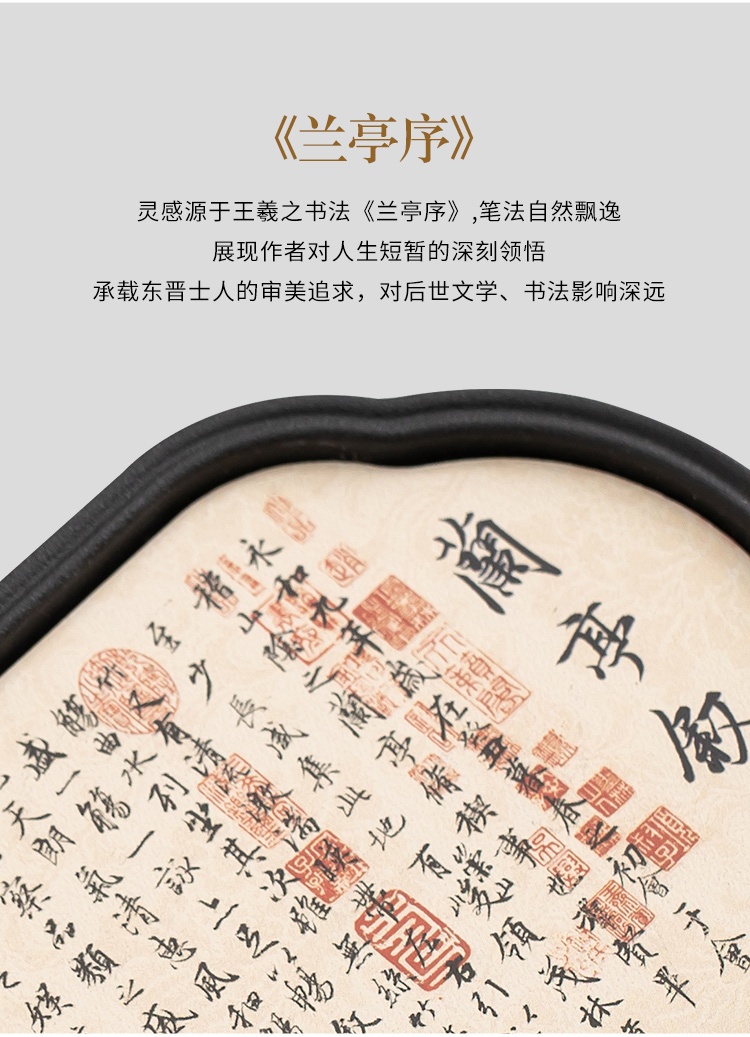 《兰亭序》
灵感源于王羲之书法《兰亭序》,笔法自然飘逸
展现作者对人生短暂的深刻领悟
承载东晋士人的审美追求，对后世文学、书法影响深远
蘭亭敘
永和九年歲在癸丑暮春之初會于會
稽山陰之蘭亭脩禊事也羣賢畢
至少長咸集此地有崇山峻領茂林
竹又有清流激湍暎帶左右引以
觴曲水列坐其次雖無絲竹
盛一觴一詠亦足以暢敘
天朗氣清惠風和暢
察品類之盛
娛